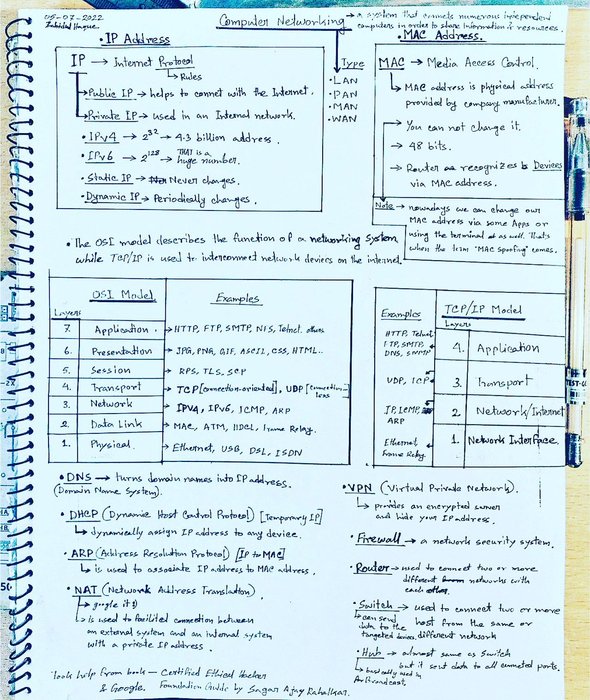 05-07-2022
Computer Networking → a system that connects numerous independent
computers in order to share information & resources.
• IP Address
IP → Internet Protocol
↳ Rules
→ Public IP → helps to connet with the Internet.
→ Private IP → used in an Internal network.
• IPv4 → 2^32 → 4.3 billion address.
• IPv6 → 2^128 → THAT is a
huge number.
• Static IP → Never changes.
• Dynamic IP → Periodically changes.
Type
• LAN
• PAN
• MAN
• WAN
• MAC Address.
MAC → Media Access Control.
↳ MAC address is physical address
provided by company manufacturer.
→ You can not change it.
→ 48 bits.
→ Router recognizes Devices
via MAC address.
Note → nowadays we can change our
MAC address via some Apps or
using the terminal as well. That's
when the term "MAC spoofing" comes.
• The OSI model describes the function of a networking system,
while TCP/IP is used to interconnect network devices on the internet.
OSI Model Examples
Layers
7. Application. → HTTP, FTP, SMTP, NIS, Telnet.
6. Presentation → JPG, PNG, GIF, ASCII, CSS, HTML..
5. Session → RPS, TLS, SCP
4. Transport → TCP [connection-oriented], UDP [connection-
less
3. Network → IPV4, IPv6, ICMP, ARP
2. Data Link → MAC, ATM, HDCL, Frame Relay.
1. Physical. → Ethernet, USB, DSL, ISDN
Examples TCP/IP Model
Layers
HTTP, Telnet
FTP, SMTP,
DNS, SNMP
4. Application
UDP, TCP
3. Transport
IP, ICMP,
ARP
2 Network/Internet
Ethernet
Frame Relay
1. Network Interface.
• DNS → turns domain names into IP address.
(Domain Name System).
• DHCP (Dynamic Host Control Protocol) [Temporary IP]
↳ dynamically assign IP address to any device.
• ARP (Address Resolution Protocol) [IP to MAC]
↳ is used to associate IP address to MAC address.
• NAT (Network Address Translation).
↳ google it :)
↳ is used to facilited connection between
an external system and an internal system
with a private IP address.
Took help from book — Certified Ethical Hacker
& Google. Foundation Guide by Sagar Ajay Rahalkar.
• VPN (Virtual Private Network).
↳ provides an encrypted server
and hide your IP address.
• Firewall → a network security system.
• Router → used to connect two or more
different networks with
each other.
• Switch → used to connect two or more
host from the same or
different network
↳ can send
data to the
targeted device.
• Hub → almost same as Switch
but it sent data to all connected ports.
↳ basically used in
for Broadcast.